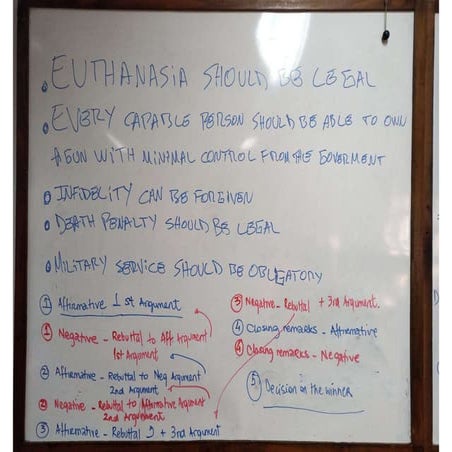 • EUTHANASIA SHOULD BE LEGAL
• EVERY CAPATBLE PERSON SHOULD BE ABLE TO OWN
A GUN WITH MINIMAL CONTROL FROM THE GOVERMENT
• INFIDELITY CAN BE FORGIVEN
• DEATH PENALTY SHOULD BE LEGAL
• MILITARY SERVICE SHOULD BE OBLIGATORY
① Affirmative 1st Argument
① Negative - Rebuttal to Aff Argument
1st Argument
② Affirmative - Rebuttal to Neg Argument
2nd Argument
② Negative - Rebuttal to Affirmative Argument
2nd Argument
③ Affirmative - Rebuttal 2 + 3nd Argument
③ Negative - Rebuttal + 3rd Argument.
④ Closing remarks - Affirmative
④ Closing remarks - Negative
⑤ Decision on the winner